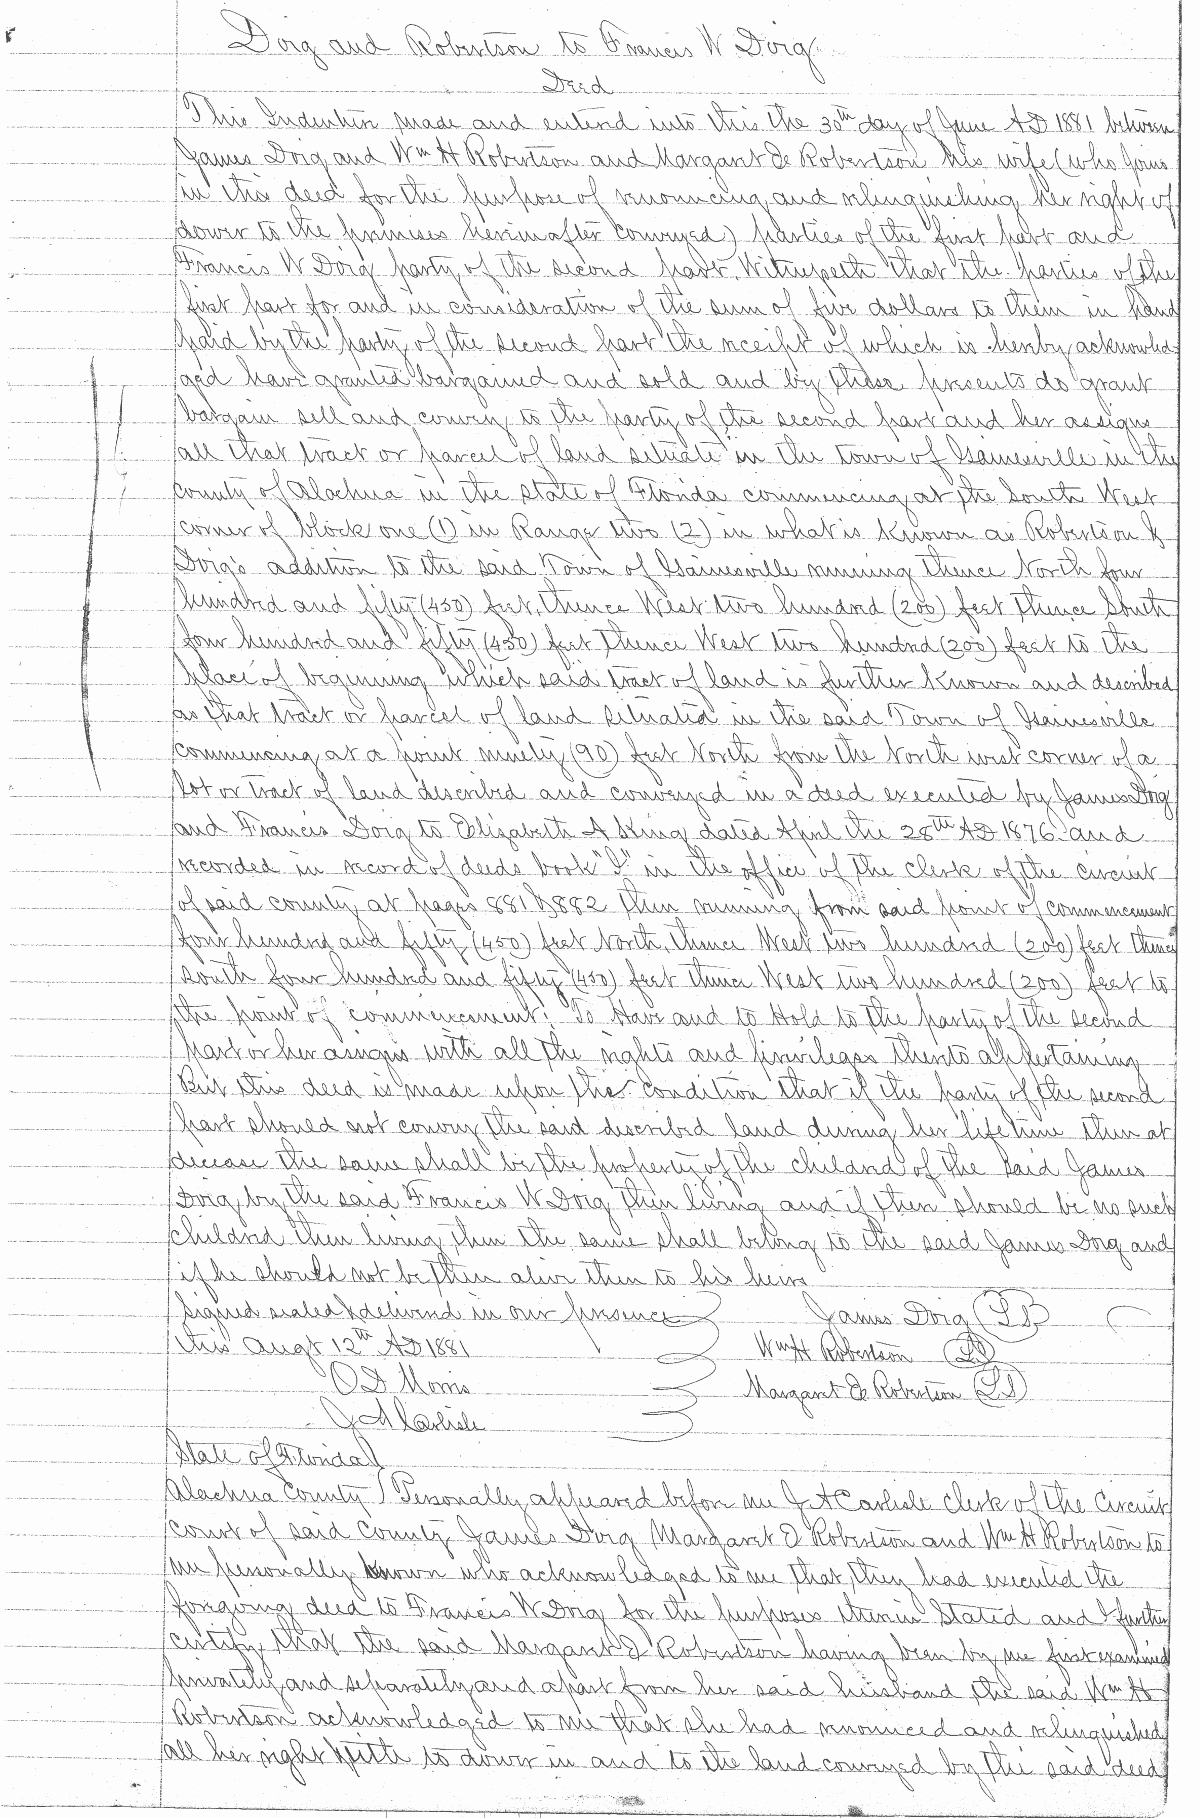 Doig and Robertson to Francis W Doig
Deed
This Indenture made and entered into this the 30th day of June AD 1881 between
James Doig and Wm H Robertson and Margaret E Robertson his wife (who joins
in this deed for the purpose of renouncing and relinquishing her right of
dower to the premises hereinafter conveyed) parties of the first part and
Francis W Doig party of the second part. Witnesseth that the parties of the
first part for and in consideration of the sum of five dollars to them in hand
paid by the party of the second part the receipt of which is hereby acknowled-
ged have granted bargained and sold and by these presents do grant
bargain sell and convey to the party of the second part and her assigns
all that tract or parcel of land situate in the town of Gainesville in the
county of Alachua in the state of Florida commencing at the South West
corner of block one (1) in Range two (2) in what is known as Robertson &
Doig's addition to the said Town of Gainesville running thence North four
hundred and fifty (450) feet, thence West two hundred (200) feet thence South
four hundred and fifty (450) feet thence West two hundred (200) feet to the
place of beginning which said tract of land is further known and described
as that tract or parcel of land situated in the said Town of Gainesville
commencing at a point ninety (90) feet North from the North west corner of a
lot or tract of land described and conveyed in a deed executed by James Doig
and Francis Doig to Elizabeth A King dated April the 28th AD 1876 and
recorded in record of deeds book "I" in the office of the clerk of the circuit
of said county at pages 881 & 882 then running from said point of commencement
four hundred and fifty (450) feet North, thence West two hundred (200) feet thence
south four hundred and fifty (450) feet thence West two hundred (200) feet to
the point of commencement: To Have and to Hold to the party of the second
part or her assigns with all the rights and privileges thereto appertaining
But this deed is made upon the condition that if the party of the second
part should not convey the said described land during her lifetime then at
decease the same shall be the property of the children of the said James
Doig by the said Francis W Doig then living and if there should be no such
children then living then the same shall belong to the said James Doig and
if he should not be then alive then to his heirs
Signed sealed & delivered in our presence James Doig (LS)
this Augt 12th AD 1881 Wm H Robertson (LS)
O D Morris Margaret E Robertson (LS)
J A Carlisle
State of Florida
Alachua County Personally appeared before me J A Carlisle clerk of the Circuit
court of said County James Doig Margaret E Robertson and Wm H Robertson to
me personally known who acknowledged to me that they had executed the
foregoing deed to Francis W Doig for the purposes therein Stated and I further
certify that the said Margaret E Robertson having been by me first examined
privately and separately and apart from her said husband the said Wm H
Robertson acknowledged to me that she had renounced and relinquished
all her right & title to dower in and to the land conveyed by the said deed